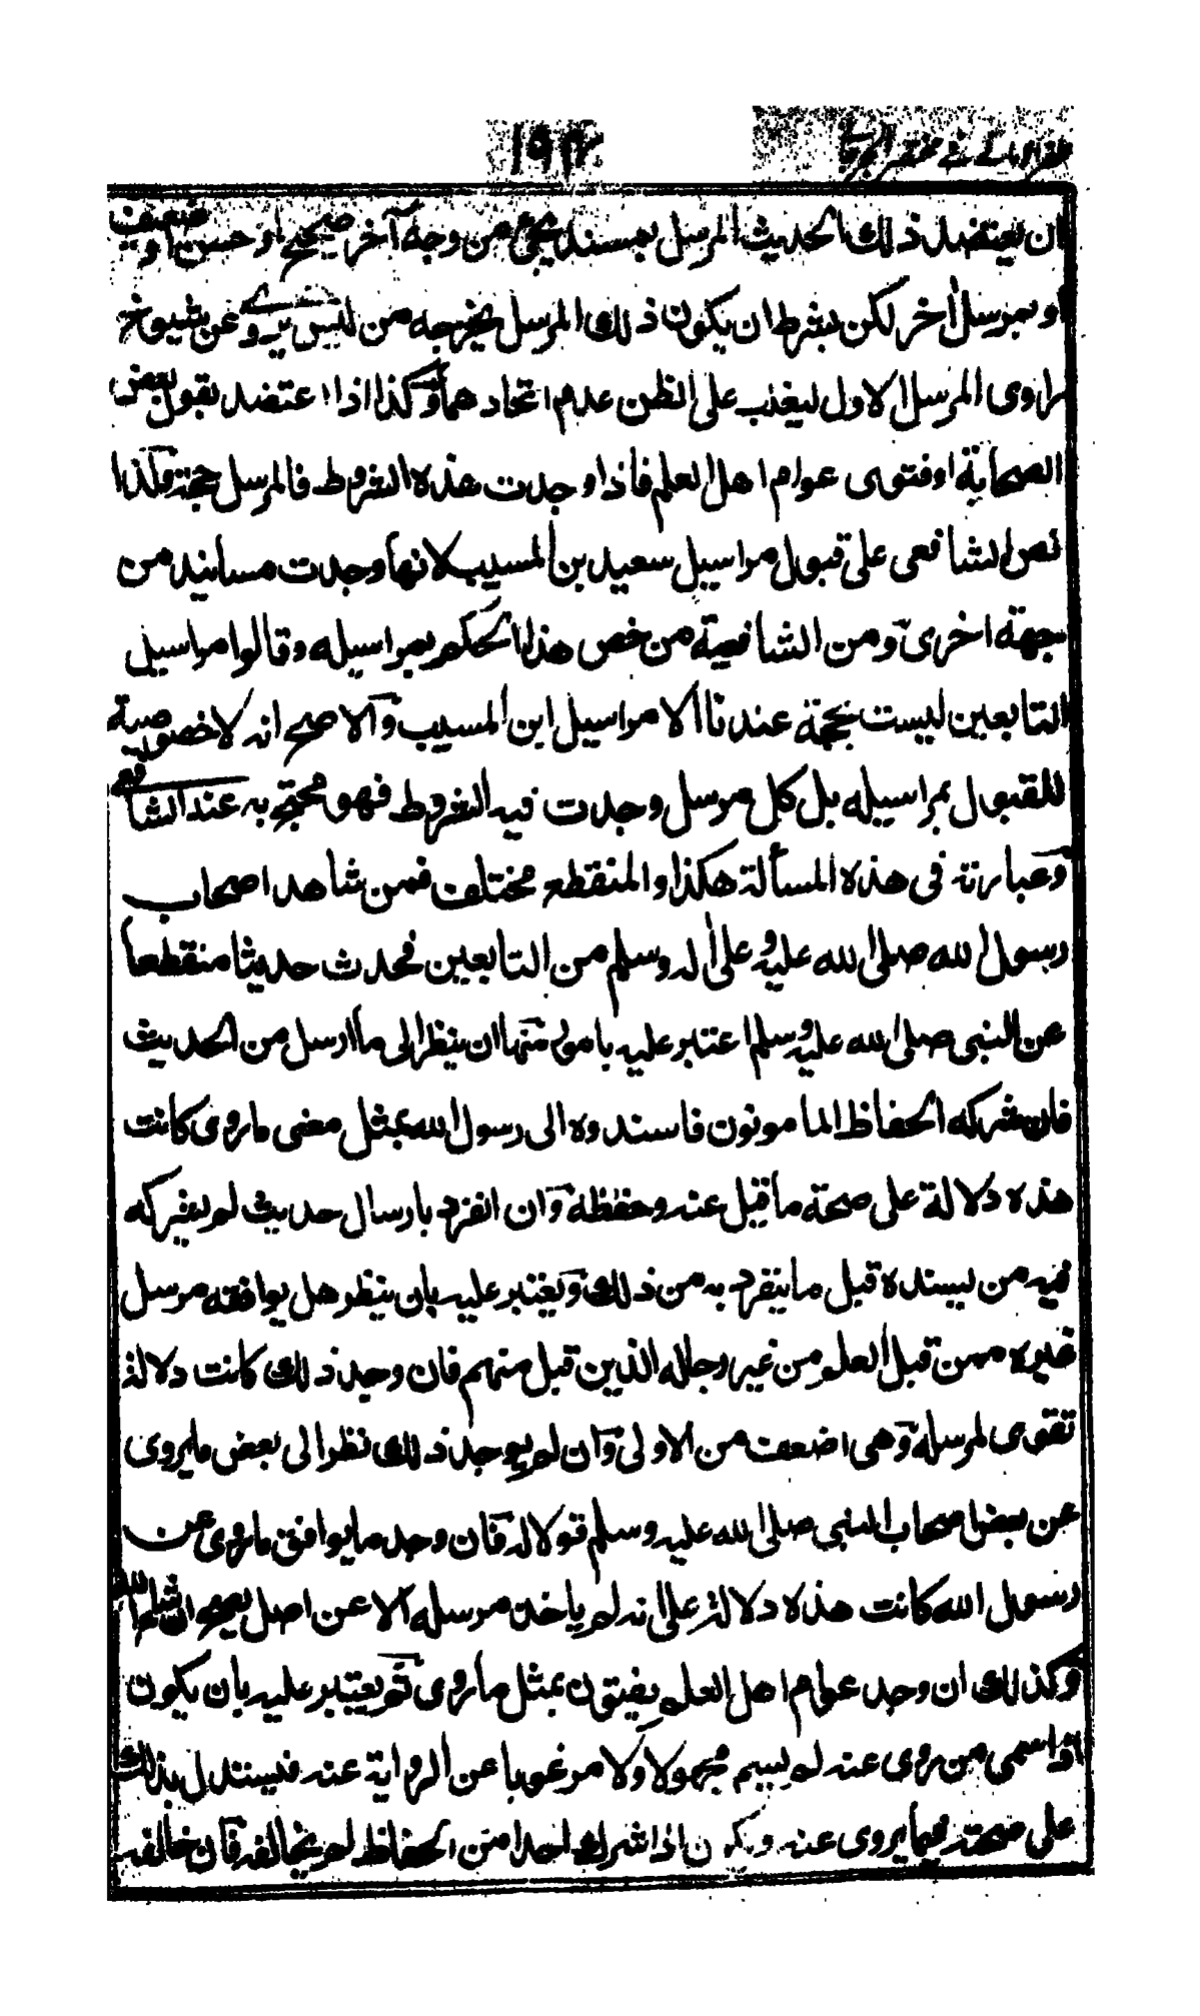 ظفر الاماني في مختصر الجرجاني ١٩٢
ان يعتضد ذلك الحديث المرسل بمسند يجئ من وجه آخر صحيح او حسن او ضعيف
او بمرسل اخر لكن بشرط ان يكون ذلك المرسل يخرجه من ليس يروى عن شيوخ
راوى المرسل الاول ليغلب على الظن عدم اتحادهما وكذا اذا اعتضد بقول بعض
الصحابة او فتوى عوام اهل العلم فاذا وجدت هذه الشروط فالمرسل حجة ولذا
نص الشافعى على قبول مراسيل سعيد بن المسيب لانها وجدت مسانيد من
جهة اخرى ومن الشافعية من خص هذا الحكم بمراسيله وقالوا مراسيل
التابعين ليست بحجة عندنا الا مراسيل ابن المسيب والاصح انه لا خصوصية
للقبول بمراسيله بل كل مرسل وجدت فيه الشروط فهو محتج به عند الشافعى
وعبارته فى هذه المسألة هكذا والمنقطع مختلف فمن شاهد اصحاب
رسول الله صلى الله عليه وعلى اله وسلم من التابعين فحدث حديثا منقطعا
عن النبى صلى الله عليه وسلم اعتبر عليه بامور منها ان ينظر الى ما ارسل من الحديث
فان شركه الحفاظ المامونون فاسندوه الى رسول الله بمثل معنى ما روى كانت
هذه دلالة على صحة ما قبل عنه وحفظه وان انفرد بارسال حديث لم يشركه
فيه من يسنده قبل ما ينفرد به من ذلك ويعتبر عليه بان ينظر هل يوافقه مرسل
غيره ممن قبل العلم من غير رجاله الذين قبل منهم فان وجد ذلك كانت دلالة
تقوى لمرسله وهى اضعف من الاولى وان لم يوجد ذلك نظر الى بعض ما يروى
عن بعض اصحاب النبى صلى الله عليه وسلم قولا له فان وجد ما يوافق ما روى عن
رسول الله كانت هذه دلالة على انه لم ياخذ مرسله الا عن اصل يصح ان شاء الله
وكذلك ان وجد عوام اهل العلم يفتون بمثل ما روى ثم يعتبر عليه بان يكون
اذا سمى من روى عنه لم يسم مجهولا ولا مرغوبا عن الرواية عنه فيستدل بذلك
على صحته فيما يروى عنه ويكون اذا شرك احدا من الحفاظ لم يخالفه فان خالفه